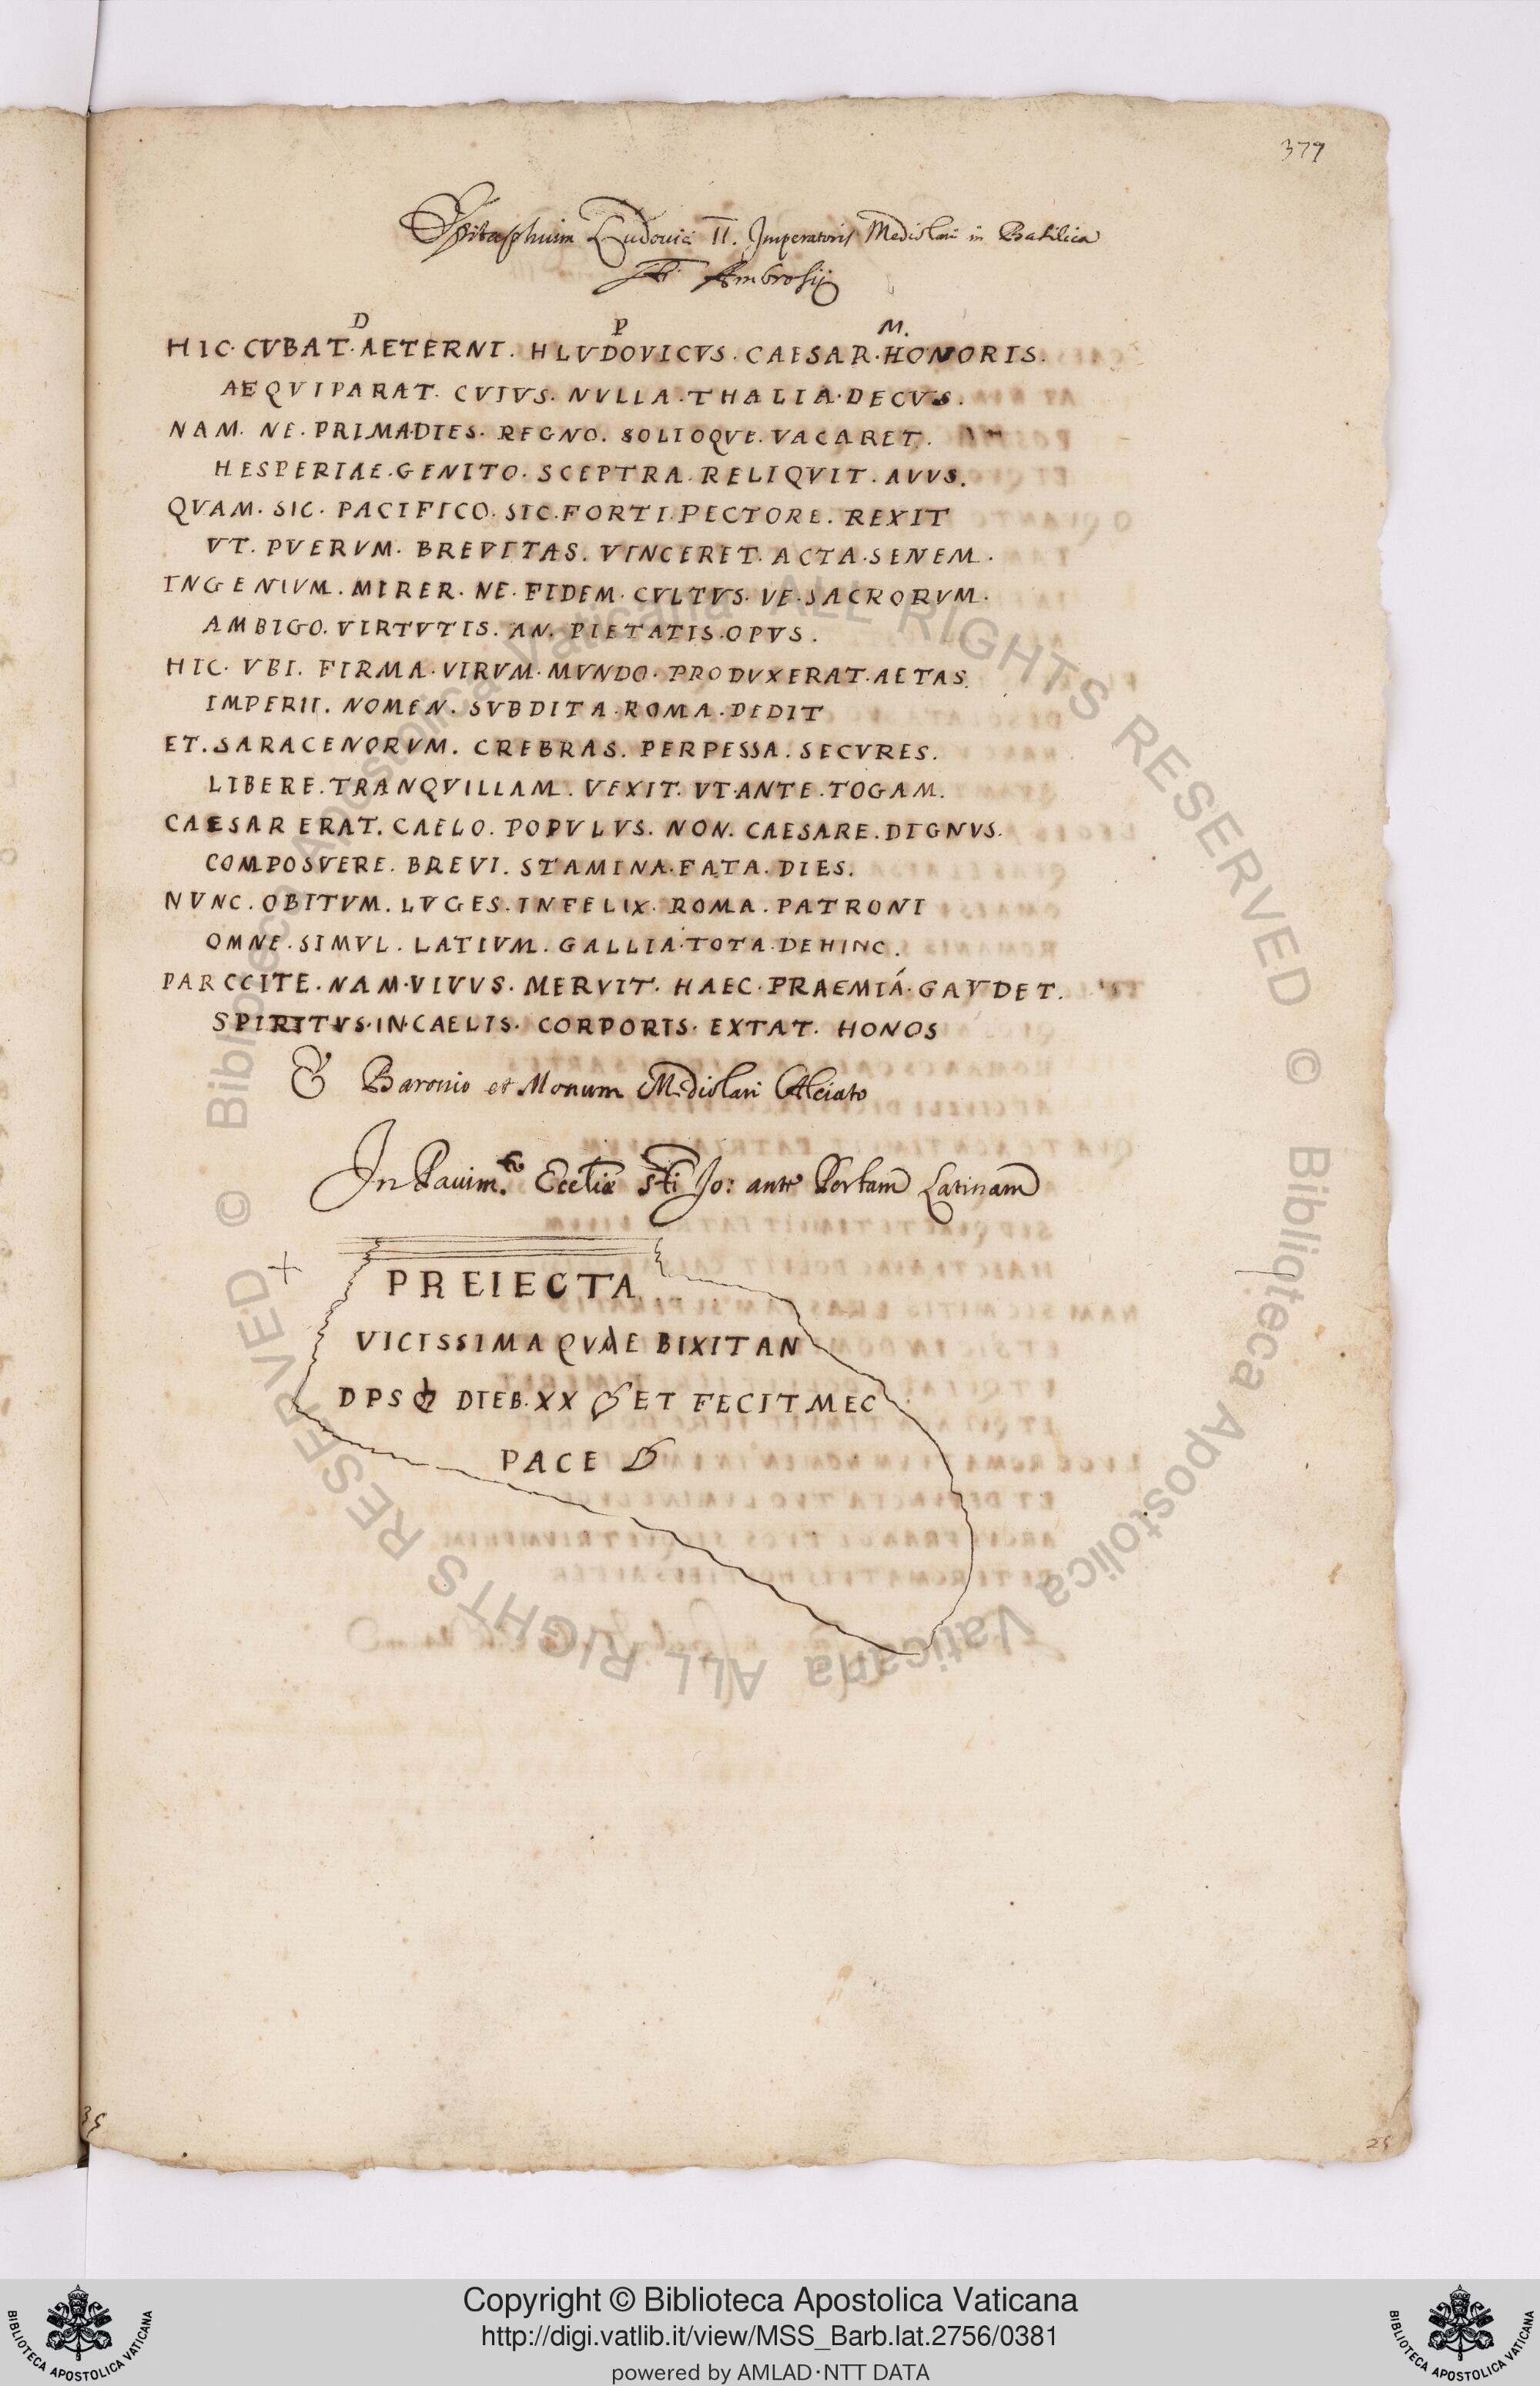 379
Epitaphium Ludovici II. Imperatoris Mediolani in Basilica
Sti Ambrosij
D P M.
HIC. CVBAT. AETERNI. HLVDOVICVS. CAESAR. HONORIS.
AEQVIPARAT. CVIVS. NVLLA. THALIA. DECVS.
NAM. NE. PRIMA.DIES. REGNO. SOLIOQVE. VACARET.
HESPERIAE. GENITO. SCEPTRA. RELIQVIT. AVVS.
QVAM. SIC. PACIFICO. SIC. FORTI. PECTORE. REXIT
VT. PVERVM. BREVITAS. VINCERET. ACTA. SENEM.
INGENIVM. MIRER. NE. FIDEM. CVLTVS. VE. SACRORVM.
AMBIGO. VIRTVTIS. AN. PIETATIS. OPVS.
HIC. VBI. FIRMA. VIRVM. MVNDO. PRODVXERAT. AETAS.
IMPERII. NOMEN. SVBDITA. ROMA. DEDIT
ET. SARACENORVM. CREBRAS. PERPESSA. SECVRES.
LIBERE. TRANQVILLAM. VEXIT. VT. ANTE. TOGAM.
CAESAR ERAT. CAELO. POPVLVS. NON. CAESARE. DIGNVS.
COMPOSVERE. BREVI. STAMINA. FATA. DIES.
NVNC. OBITVM. LVGES. INFELIX. ROMA. PATRONI
OMNE. SIMVL. LATIVM. GALLIA. TOTA. DEHINC.
PARCCITE. NAM. VIVVS. MERVIT. HAEC. PRAEMIÁ. GAVDET.
SPIRITVS. IN. CAELIS. CORPORIS. EXTAT. HONOS
Baronio et Monum Mediolani Alciato
In Pavim.to Eccliae Sti Jo: ante Portam Latinam
PREIECTA
VICISSIMA QVAE BIXIT AN
DPS DIEB. XX ET FECIT MEC
PACE
25
Copyright © Biblioteca Apostolica Vaticana
http://digi.vatlib.it/view/MSS_Barb.lat.2756/0381
powered by AMLAD·NTT DATA
BIBLIOTECA APOSTOLICA VATICANA
BIBLIOTECA APOSTOLICA VATICANA
© Biblioteca Apostolica Vaticana ALL RIGHTS RESERVED © Biblioteca Apostolica Vaticana ALL RIGHTS RESERVED